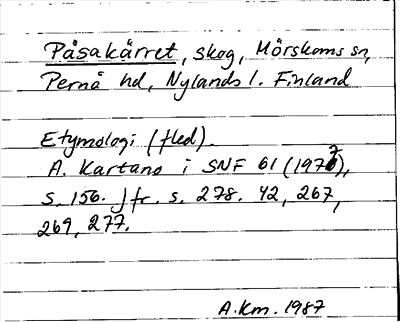 Påsakärret, skog, Mörskoms sn,
Pernå hd, Nylands l. Finland
Etymologi (fled).
A. Kartano i SNF 61 (1977),
s. 156. Jfr. s. 278. 42, 267,
269, 277.
A.Km. 1987